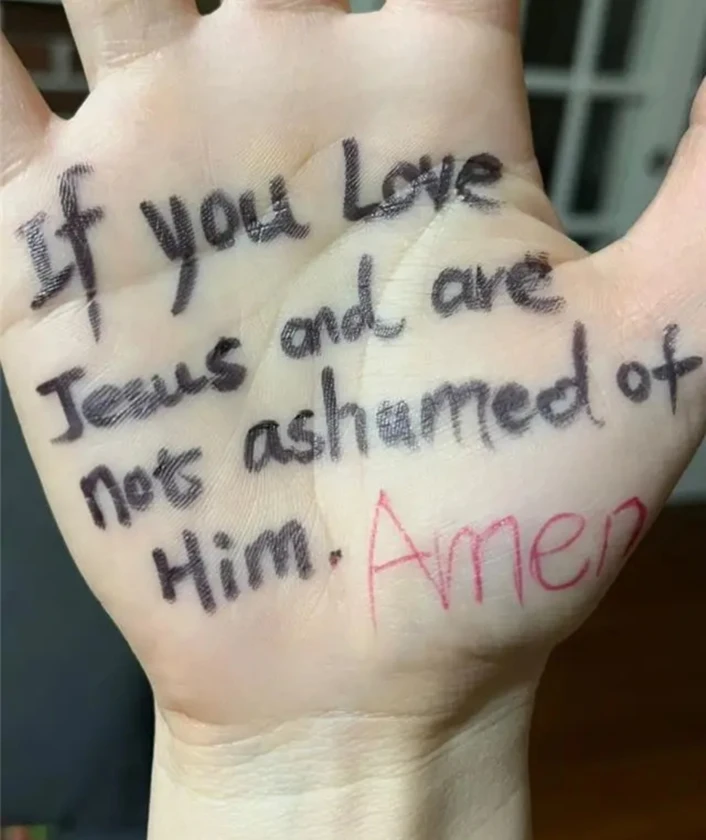 If you Love
Jesus and are
not ashamed of
Him. Amen